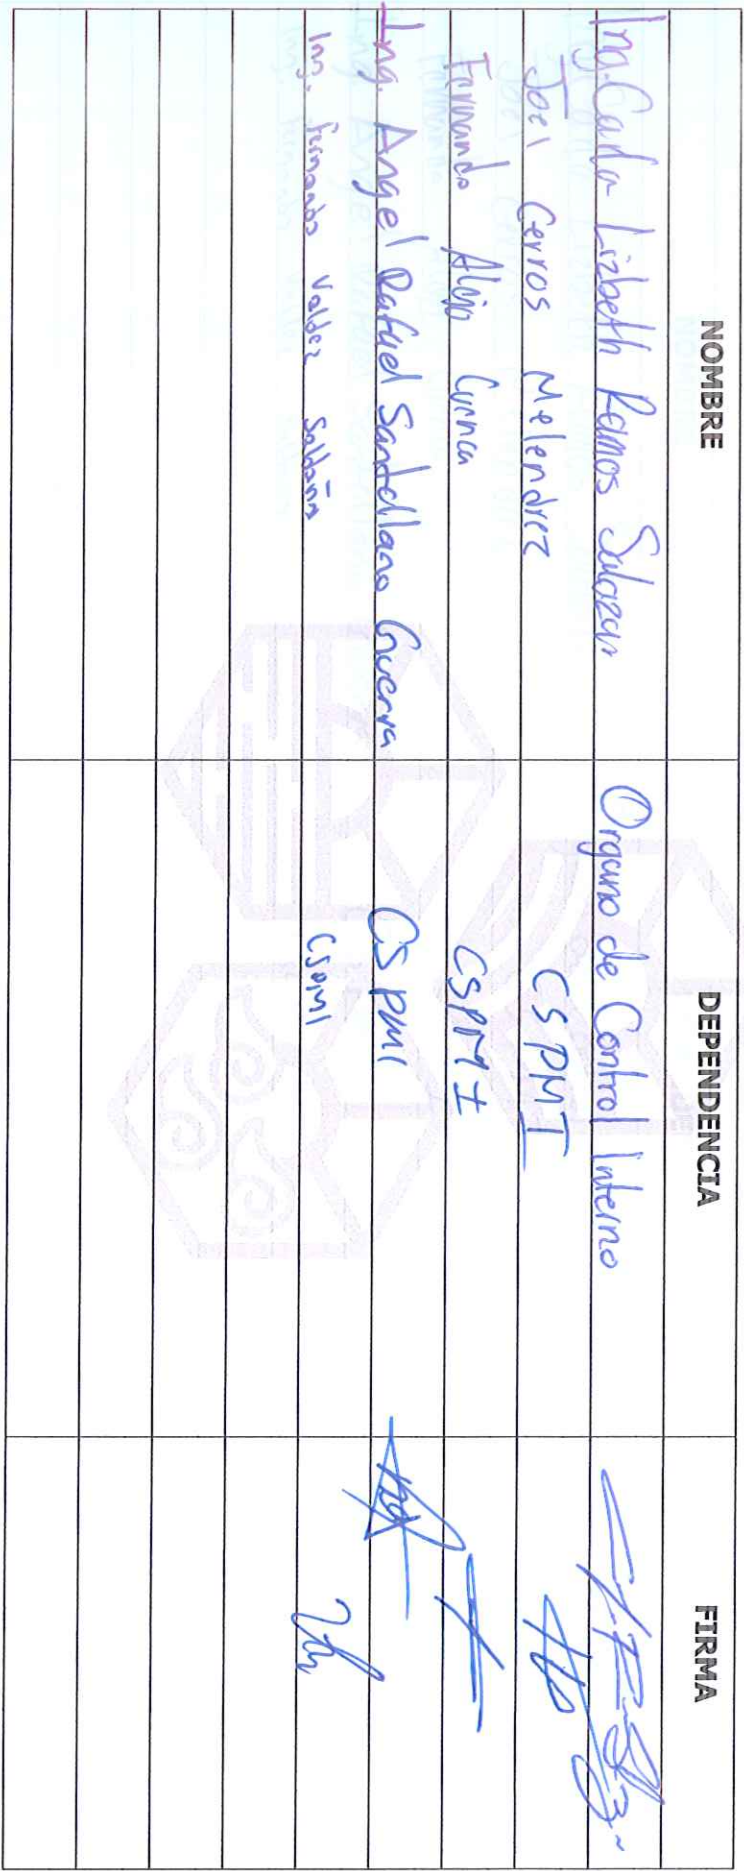 NOMBRE DEPENDENCIA FIRMA
Ing. Carla Lizbeth Ramos Salazar Organo de Control Interno
Joel Cerros Melendrez CSPMI
Fernando Alejo CSPMI
Ing. Angel Rafael Santellano Guerra CSPMI
Ing. Fernando Valdez Saldaña CSPMI